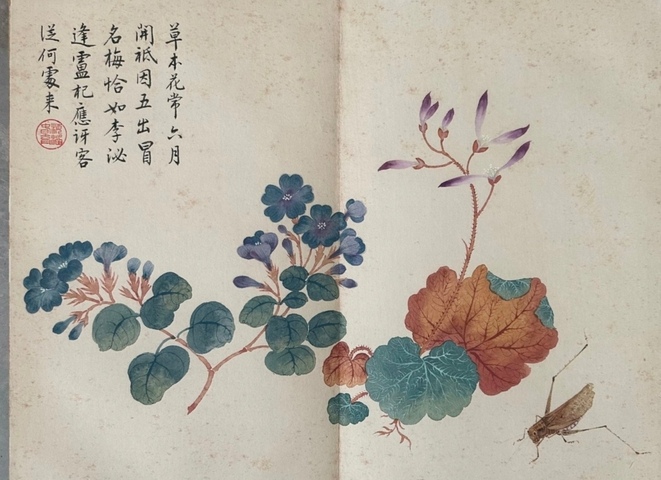 草本花常六月
開祗因五出冒
名梅恰如李泌
逢盧杞應訝客
從何處来